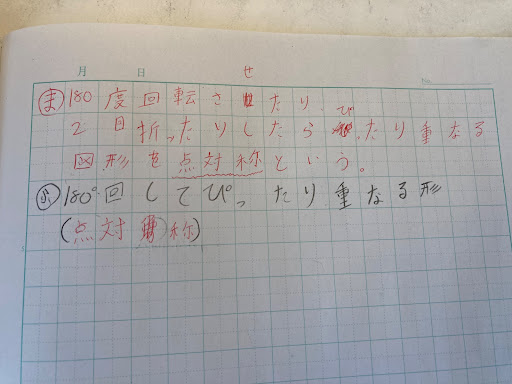 月 日
No.
せ
ま 180度回転させたり
2つ目折ったりしたらぴったり重なる
図形を点対称という。
ふ 180°回してぴったり重なる形
(点対称)